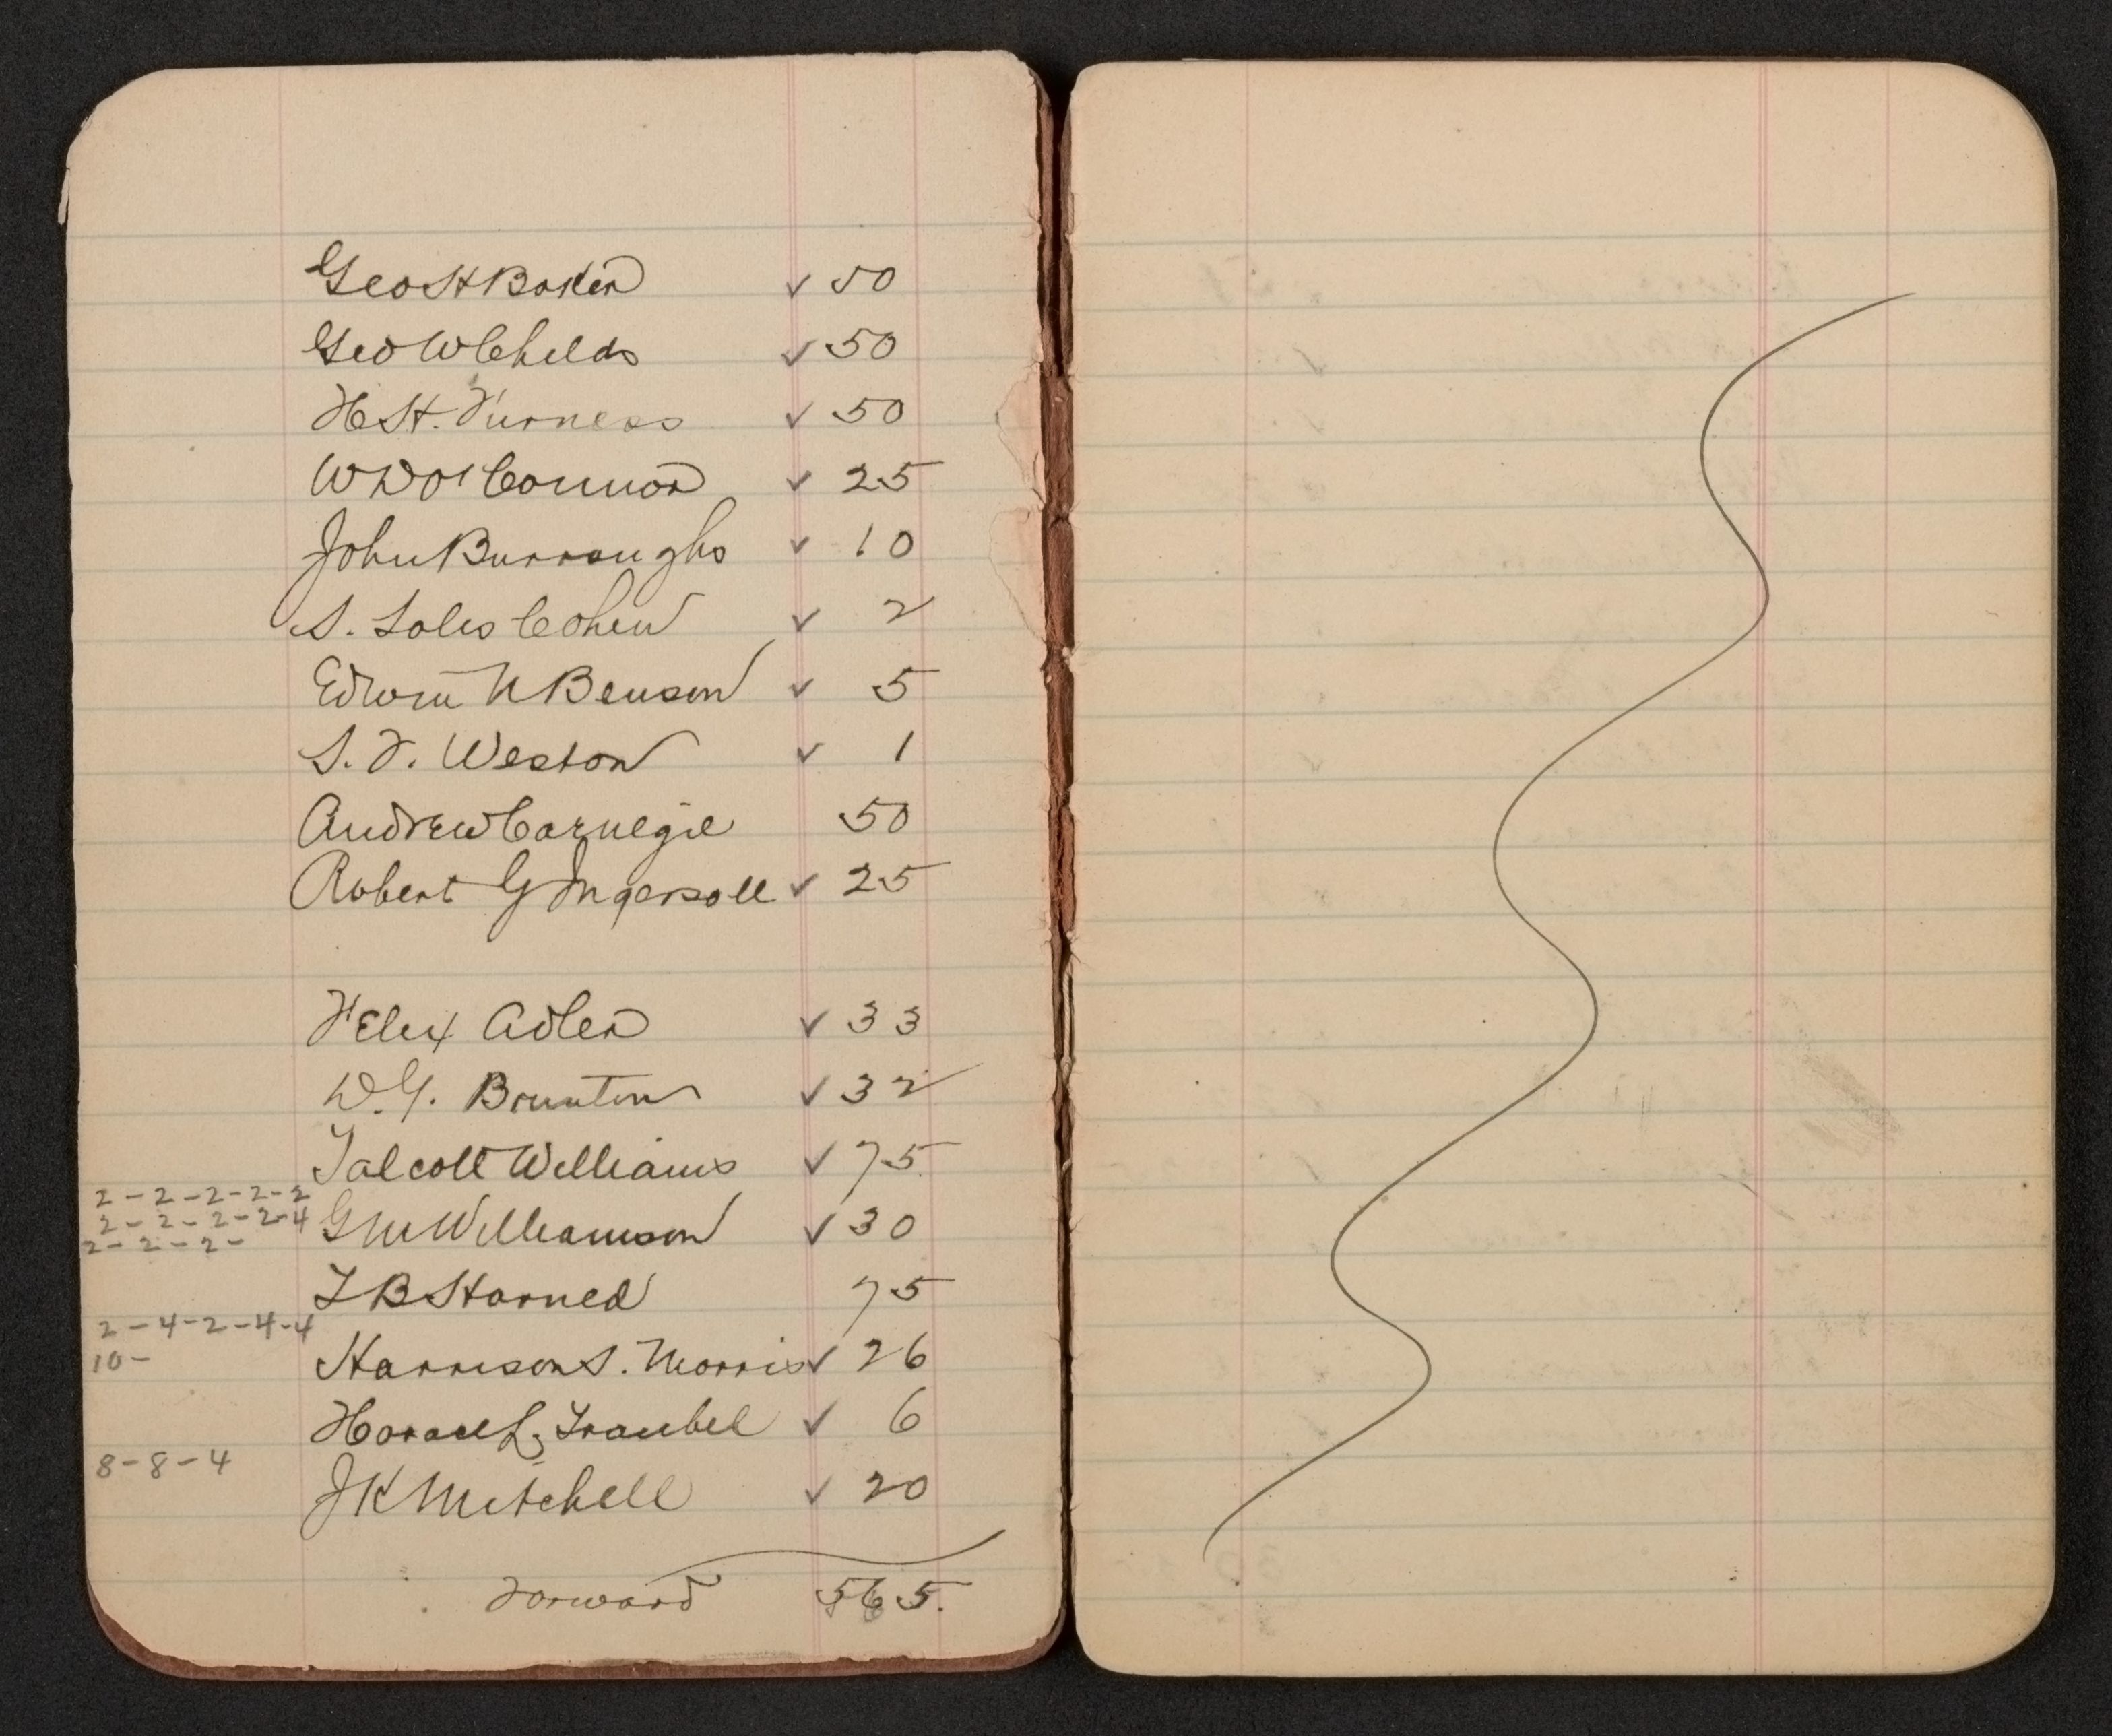 Geo H Boker ✓ 50
Geo W Childs ✓ 50
H H. Furness ✓ 50
W D O'Connor ✓ 25
John Burroughs ✓ 10
S. Solis Cohen ✓ 2
Edwin N Benson ✓ 5
S. F. Weston ✓ 1
Andrew Carnegie 50
Robert G Ingersoll ✓ 25
Felix Adler ✓ 33
D. G. Brinton ✓ 32
Talcott Williams ✓ 75
2-2-2-2-2
2-2-2-2-4 G M Williamson ✓ 30
2-2-2-
T B Harned 75
2-4-2-4-4
10- Harrison S. Morris ✓ 26
Horace L. Traubel ✓ 6
8-8-4
J K Mitchell ✓ 20
Forward 565.